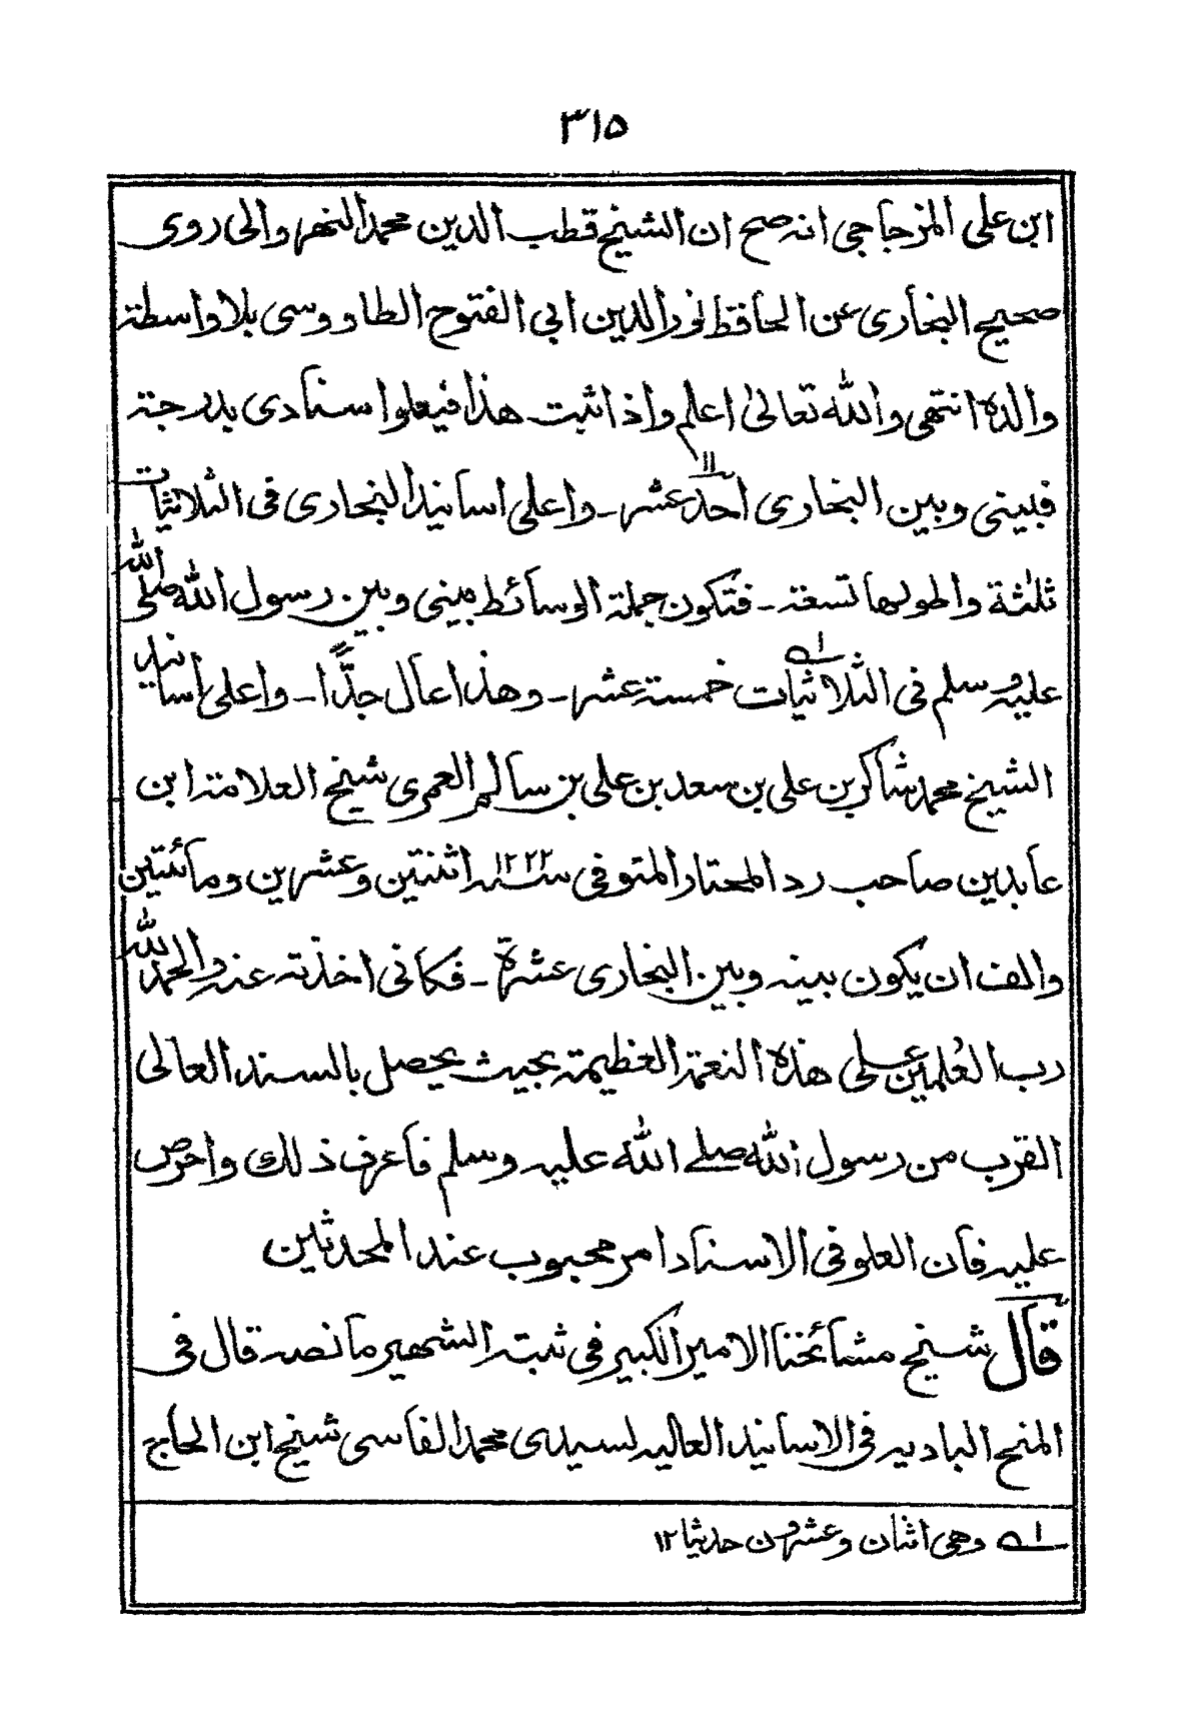 ٣١٥
ابن على المزجاجى انه صح ان الشيخ قطب الدين محمد النهر والى روى
صحيح البخارى عن الحافظ نور الدين ابى الفتوح الطاووسى بلا واسطة
والده انتهى والله تعالىٰ اعلم واذا ثبت هذا فيعلوا سنادى بدرجة
فبينى وبين البخارى احد عشر ١١ ـ واعلى اسانيد البخارى فى الثلاثيات
ثلٰثة واطولها تسعة ـ فتكون جملة الوسائط بينى وبين رسول الله صلى الله
عليه وسلم فى الثلاثيات ا؎ خمسة عشر ـ وهذا عال جدًّا ـ واعلى اسانيد
الشيخ محمد شاكر بن على بن سعد بن على بن سالم العمرى شيخ العلامة ابن
عابدين صاحب رد المحتار المتوفى سنة ١٢٢٢ اثنتين وعشرين ومائتين
والف ان يكون بينه وبين البخارى عشرة ـ فكانى اخذته عنه والحمد لله
رب العٰلمين على هذه النعمة العظيمة بحيث يحصل بالسند العالى
القرب من رسول الله صلے الله عليه وسلم فاعرف ذلك واحرص
عليه فان العلو فى الاسناد امر محبوب عند المحدثين
قال شيخ مشائخنا الامير الكبير فى ثبته الشهير ما نصه قال فى
المنح الباديه فى الاسانيد العاليه لسيدى محمد الفاسى شيخ ابن الحاج
ا؎ وهى اثنان وعشرون حديثا ١٢